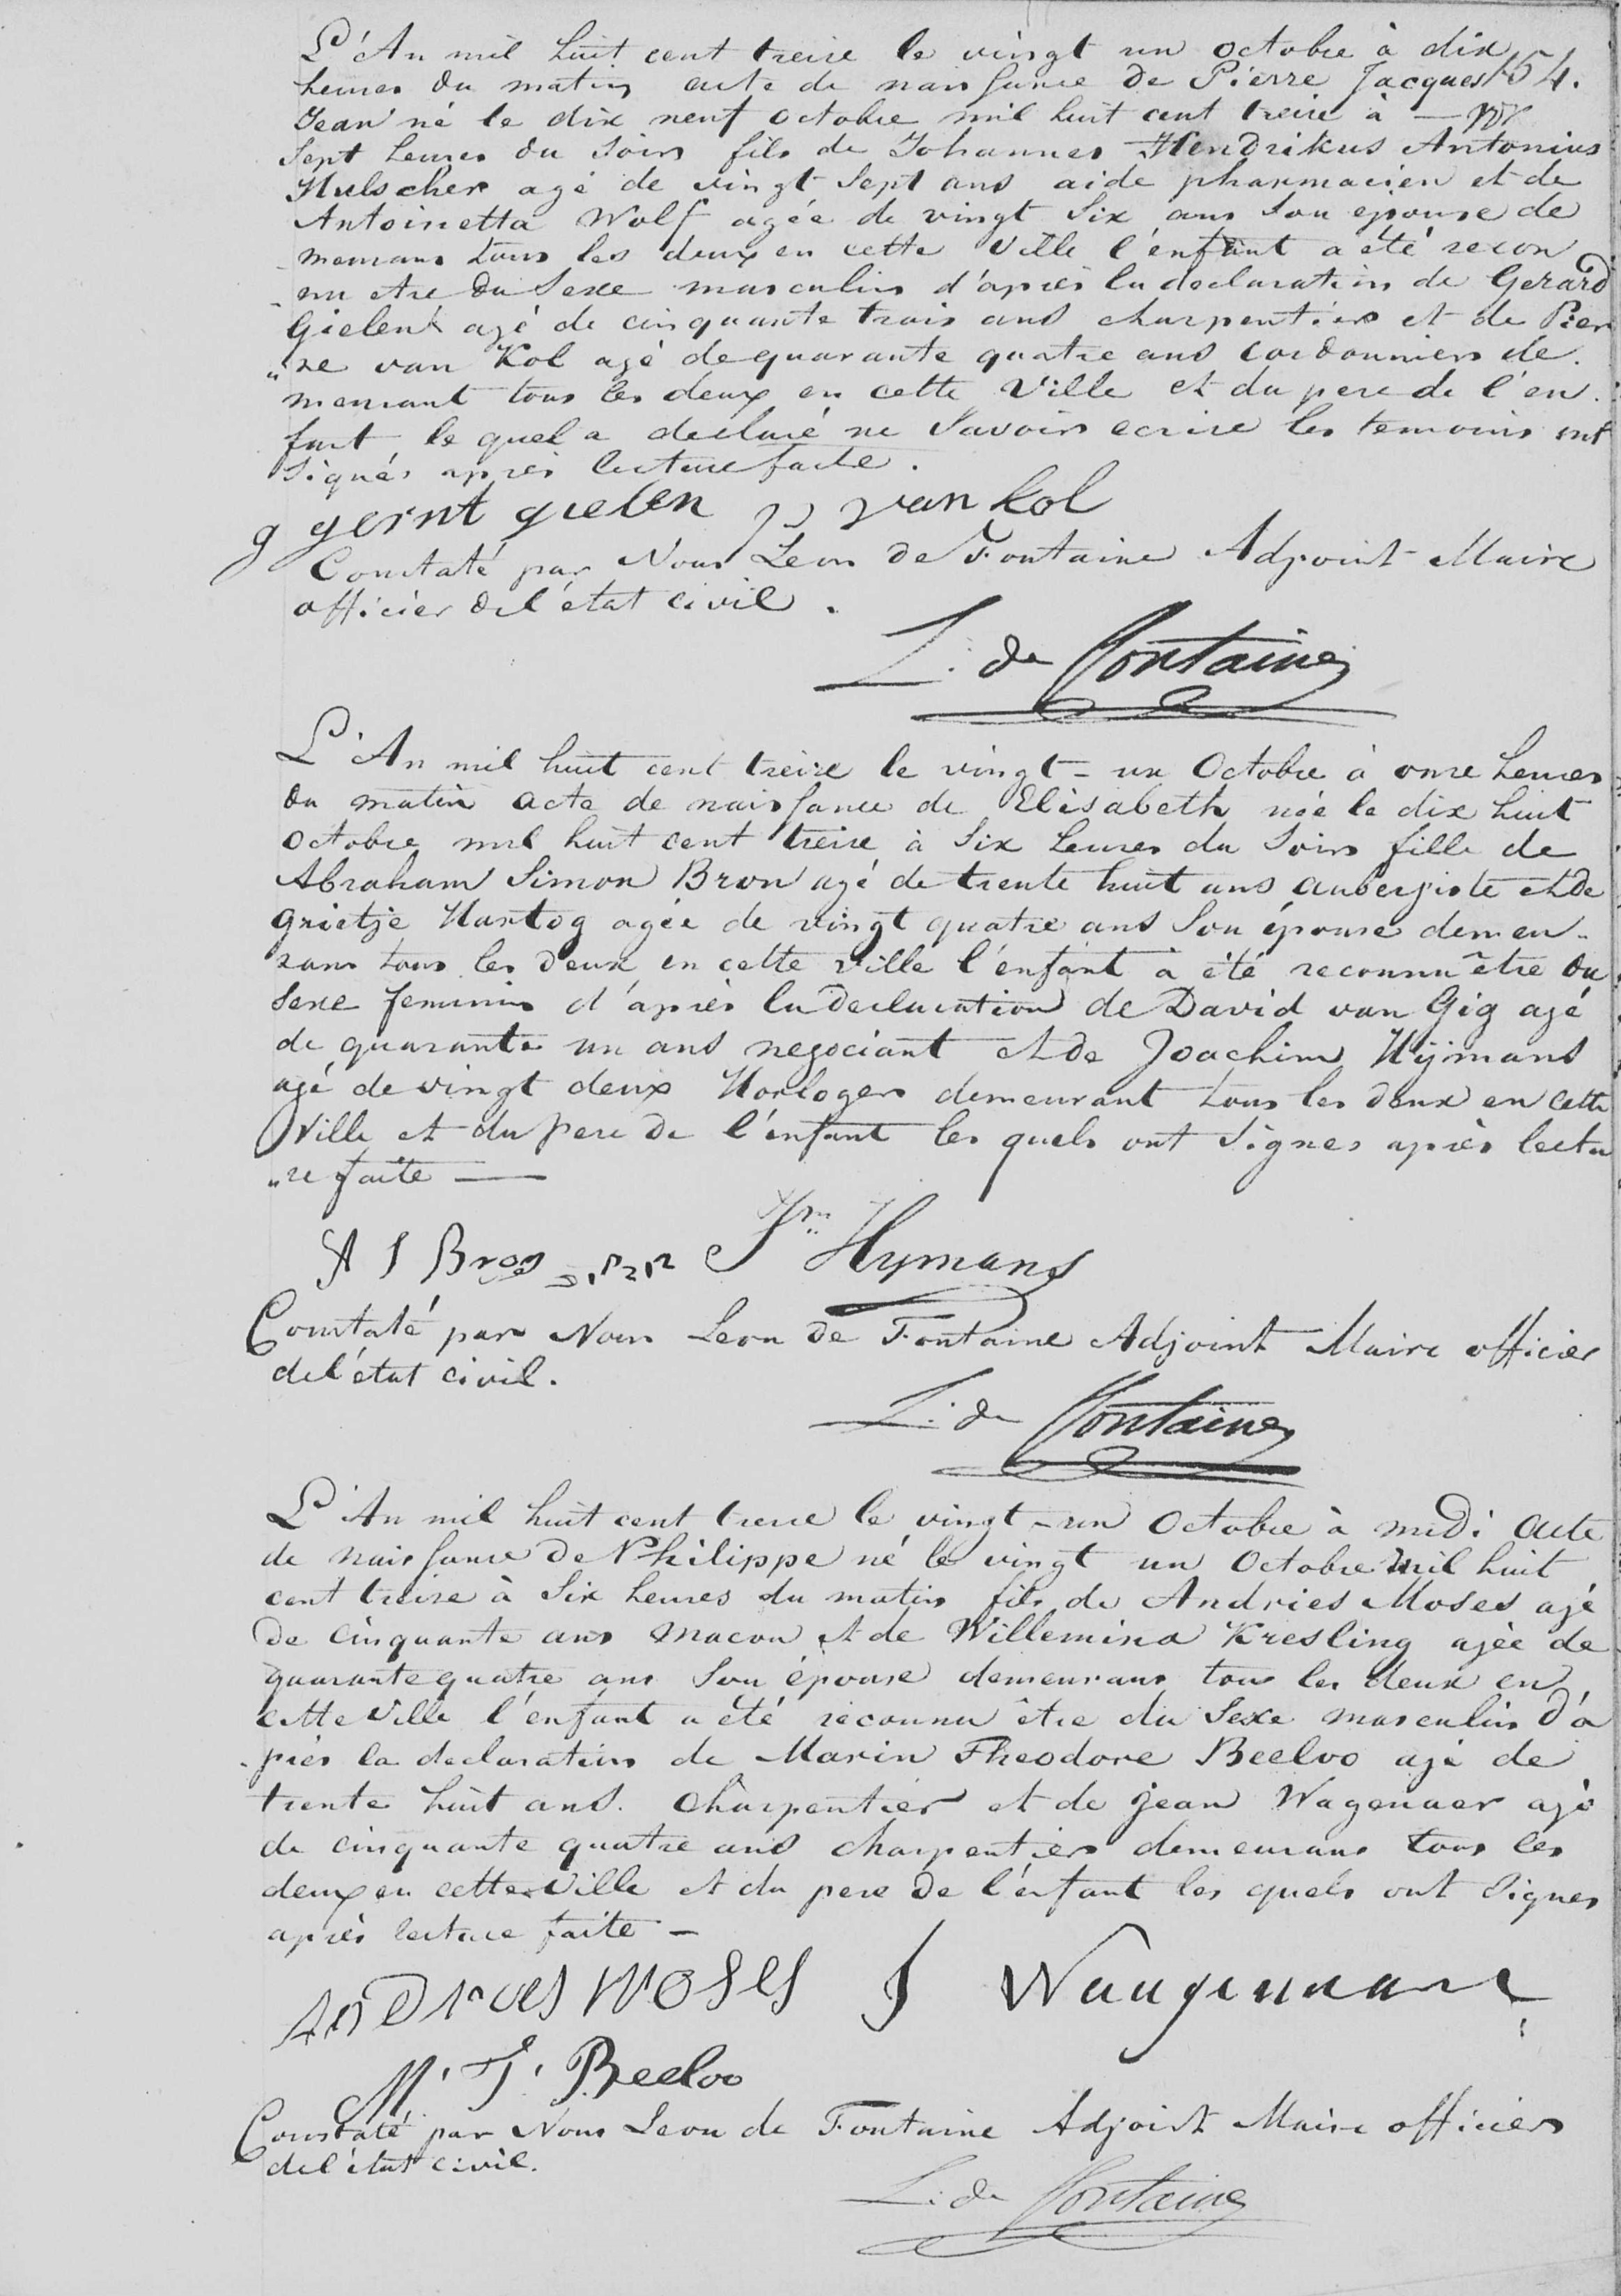 L'An mil huit cent treize le vingt un octobre à dix
heures du matin acte de naissance de Pierre Jacques 154.
Jean né le dix neuf octobre mil huit cent treize à —
sept heures du soir fils de Johannes Hendrikus Antonius
Hulscher agé de vingt sept ans aide pharmacien et de
Antoinetta Wolf agée de vingt six ans son epouse de
meurans tous les deux en cette Ville l'enfant a été recon
nu etre du sexe masculin d'après la declaration de Gerard
Gielen agé de cinquante trois ans charpentier et de Pier
"re van Kol agé de quarante quatre ans cordonnier de.
meurant tous les deux en cette Ville et du pere de l'en.
fant le quel a declaré ne savoir ecrire les temoins ont
signés après lecture faite.
g gernt gielen p van kol
Constaté par Nous Leon de Fontaine Adjoint Maire
officier de l'état civil.
L: de Fontaine
L'An mil huit cent treize le vingt-un Octobre à onze heures
du matin acte de naissance de Elisabeth née le dix huit
octobre mil huit cent treize à six heures du soir fille de
Abraham Simon Bron agé de trente huit ans aubergiste et de
Grietje Hartog agée de vingt quatre ans son épouse demeu-
rans tous les deux en cette ville l'enfant a été reconnu être du
sexe feminin d'après la declaration de David van Gig agé
de quarante un ans negociant et de Joachim Hijmans
agé de vingt deux Horloger demeurant tous les deux en cette
Ville et du pere de l'enfant les quels ont signes après lectu
"re faite —
A S Bron Jm Hymans
Constaté par Nous Leon de Fontaine Adjoint Maire officier
de l'état civil.
L: de Fontaine
L'An mil huit cent treize le vingt-un Octobre à midi acte
de naissance de Philippe né le vingt un Octobre mil huit
cent treize à six heures du matin fils de Andries Moses agé
de cinquante ans macon et de Willemina Kresling agée de
quarante quatre ans son épouse demeurans tous les deux en
cette Ville l'enfant a été reconnu être du sexe masculin d'a
près la declaration de Marin Theodore Beeloo agé de
trente huit ans. charpentier et de Jean Wagenaer agé
de cinquante quatre ans charpentier demeurans tous les
deux en cette Ville et du pere de l'enfant les quels ont signes
après lecture faite —
Andries Moses J Waagenaar
M. T. Beeloo
Constaté par Nous Leon de Fontaine Adjoint Maire officier
de l'état civil.
L: de Fontaine